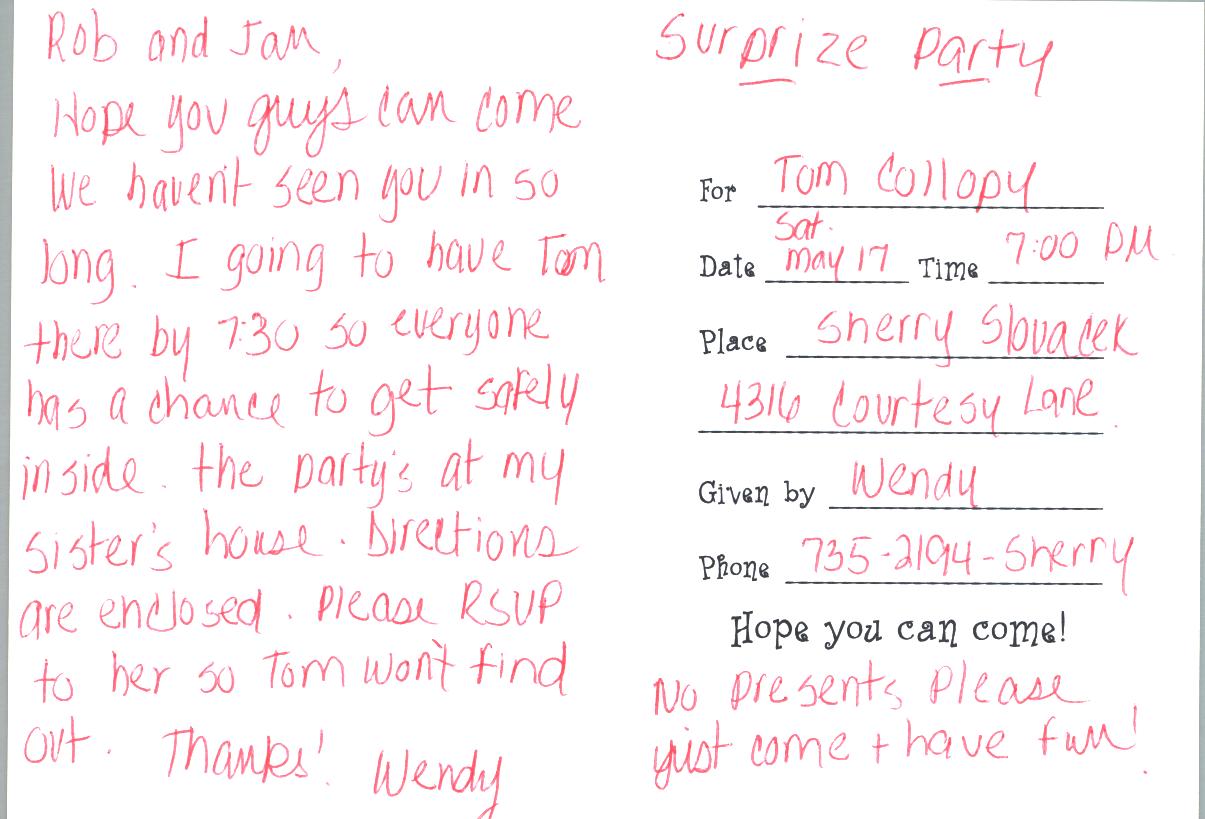 Rob and Jan,
Hope you guys can come
We haven't seen you in so
long. I going to have Tom
there by 7:30 so everyone
has a chance to get safely
inside. the party's at my
sister's house. Directions
are enclosed. Please RSVP
to her so Tom won't find
out. Thanks! Wendy
Surprize Party
For Tom Collopy
Sat.
Date May 17 Time 7:00 PM
Place Sherry Slovacek
4316 Courtesy Lane
Given by Wendy
Phone 735-2194-Sherry
Hope you can come!
No presents, Please
just come + have fun!